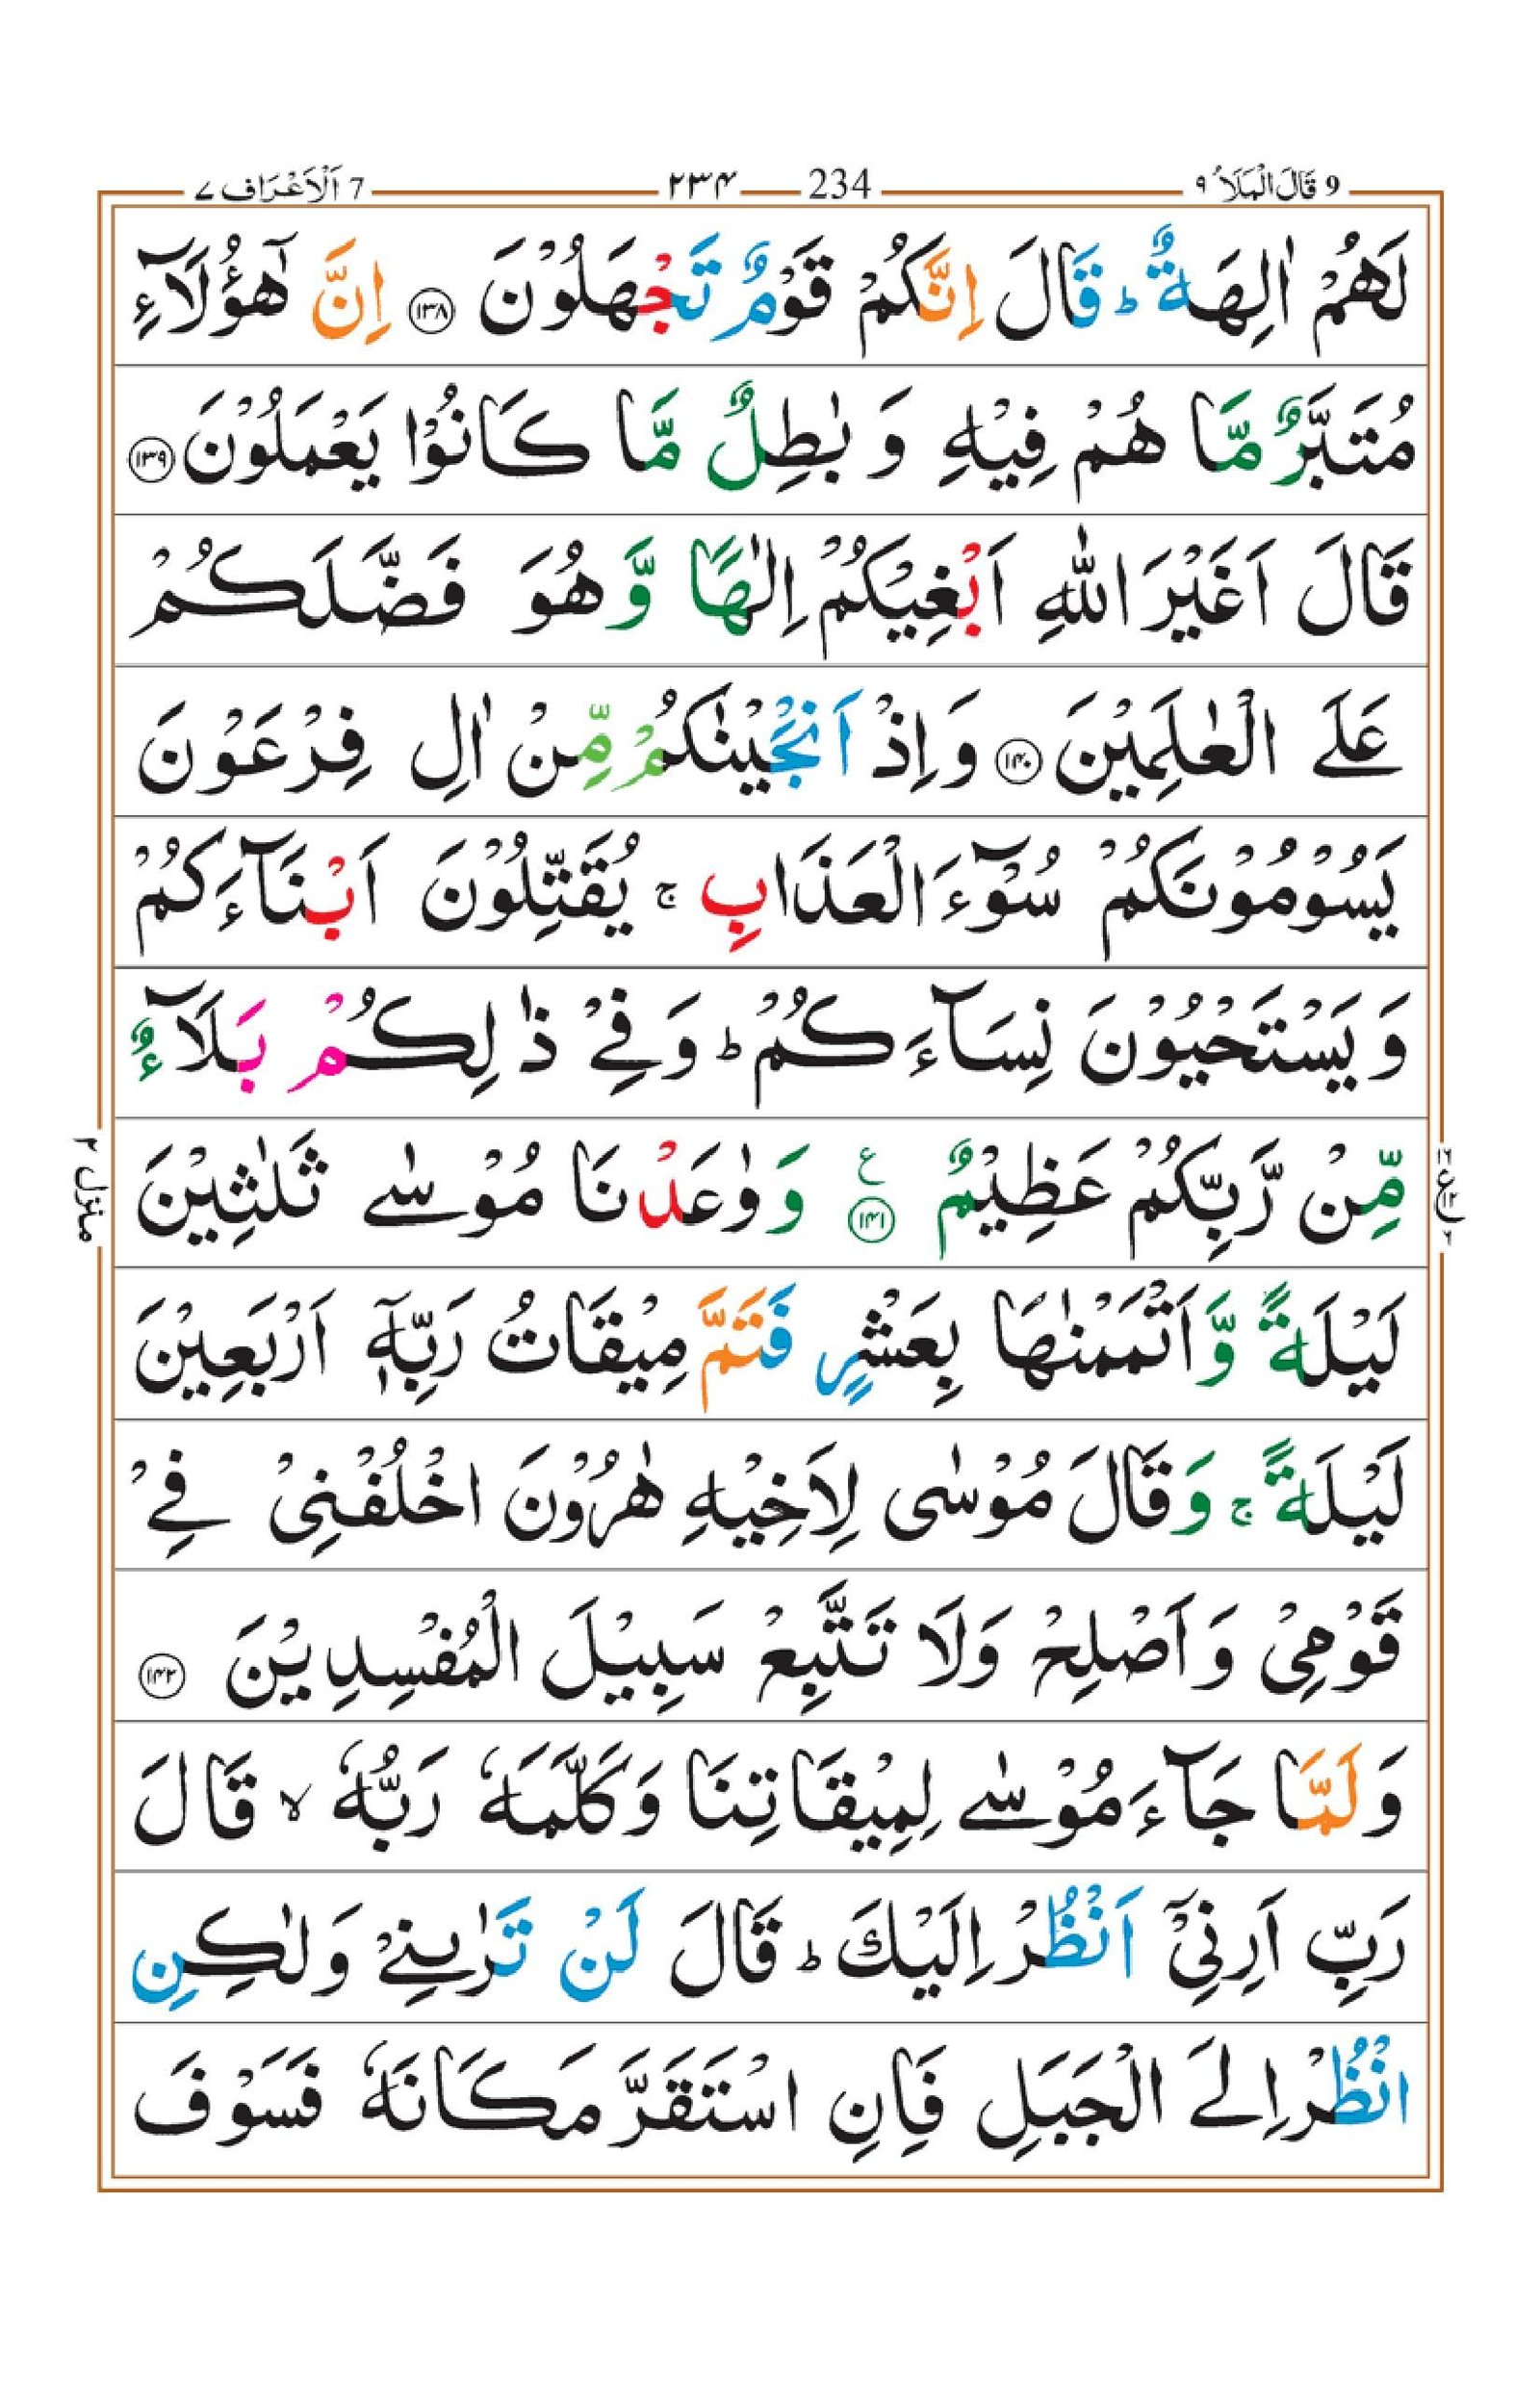 9 قَالَ الْمَلَاُ ۹ 234 ۲۳۴ 7 اَلْاَعْرَاف ۷
لَهُمْ اٰلِهَةٌ ؕ قَالَ اِنَّكُمْ قَوْمٌ تَجْهَلُوْنَ ﴿۱۳۸﴾ اِنَّ هٰۤؤُلَآءِ
مُتَبَّرٌ مَّا هُمْ فِيْهِ وَ بٰطِلٌ مَّا كَانُوْا يَعْمَلُوْنَ ﴿۱۳۹﴾
قَالَ اَغَيْرَ اللّٰهِ اَبْغِيْكُمْ اِلٰهًا وَّ هُوَ فَضَّلَكُمْ
عَلَے الْعٰلَمِيْنَ ﴿۱۴۰﴾ وَ اِذْ اَنْجَيْنٰكُمْ مِّنْ اٰلِ فِرْعَوْنَ
يَسُوْمُوْنَكُمْ سُوْٓءَ الْعَذَابِ ۚ يُقَتِّلُوْنَ اَبْنَآءَكُمْ
وَ يَسْتَحْيُوْنَ نِسَآءَكُمْ ؕ وَ فِيْ ذٰلِكُمْ بَلَآءٌ
مِّنْ رَّبِّكُمْ عَظِيْمٌ ﴿۱۴۱﴾ ع وَ وٰعَدْنَا مُوْسٰے ثَلٰثِيْنَ
لَيْلَةً وَّ اَتْمَمْنٰهَا بِعَشْرٍ فَتَمَّ مِيْقَاتُ رَبِّهٖۤ اَرْبَعِيْنَ
لَيْلَةً ۚ وَ قَالَ مُوْسٰى لِاَخِيْهِ هٰرُوْنَ اخْلُفْنِىْ فِےْ
قَوْمِىْ وَ اَصْلِحْ وَلَا تَتَّبِعْ سَبِيْلَ الْمُفْسِدِيْنَ ﴿۱۴۲﴾
وَ لَمَّا جَآءَ مُوْسٰے لِمِيْقَاتِنَا وَ كَلَّمَهٗ رَبُّهٗ ۙ قَالَ
رَبِّ اَرِنِےْۤ اَنْظُرْ اِلَيْكَ ؕ قَالَ لَنْ تَرٰىنِےْ وَ لٰكِنِ
انْظُرْ اِلَے الْجَبَلِ فَاِنِ اسْتَقَرَّ مَكَانَهٗ فَسَوْفَ
منزل ۲